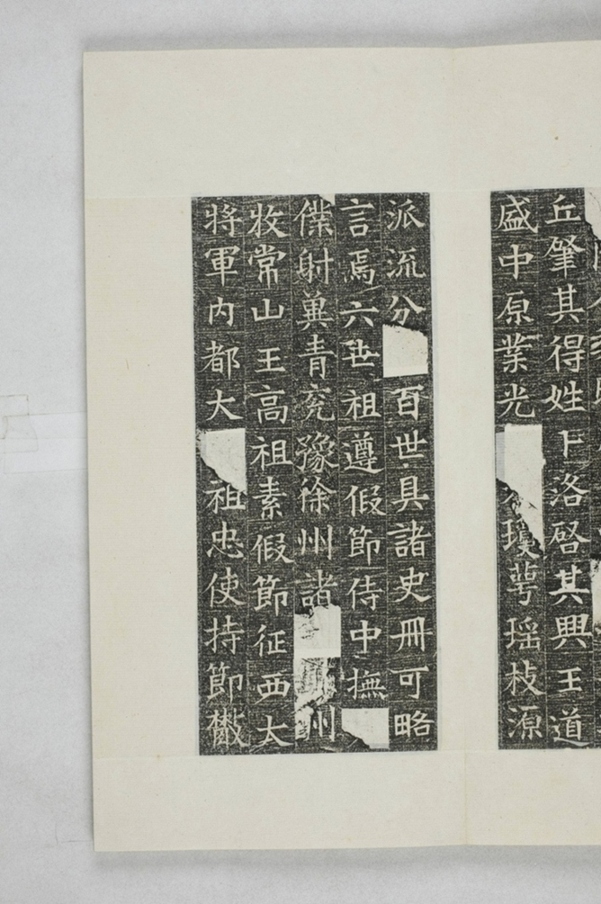 丘肇其得姓卜洛啓其興王道
盛中原業光瓊萼瑶枝源
派流分百世具諸史冊可略
言焉六世祖遵假節侍中撫
僕射冀青兖豫徐州諸州
牧常山王高祖素假節征西大
將軍内都大祖忠使持節散